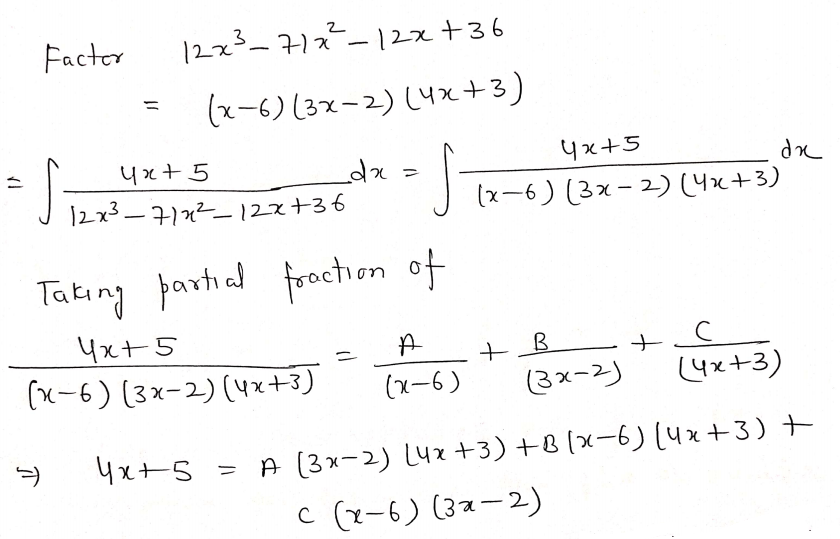 Factor 12x³ - 71x² - 12x + 36
= (x-6)(3x-2)(4x+3)
= ∫ (4x+5)/(12x³ - 71x² - 12x + 36) dx = ∫ (4x+5)/((x-6)(3x-2)(4x+3)) dx
Taking partial fraction of
(4x+5)/((x-6)(3x-2)(4x+3)) = A/(x-6) + B/(3x-2) + C/(4x+3)
⇒ 4x+5 = A(3x-2)(4x+3) + B(x-6)(4x+3) +
C(x-6)(3x-2)